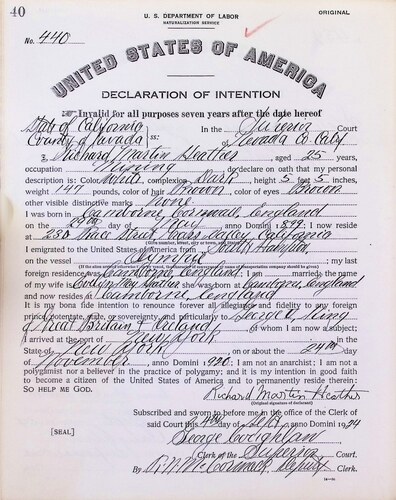 40
U. S. DEPARTMENT OF LABOR
NATURALIZATION SERVICE
ORIGINAL
No. 440
UNITED STATES OF AMERICA
DECLARATION OF INTENTION
Invalid for all purposes seven years after the date hereof
State of California
County of Nevada ss: In the Superior Court
of Nevada Co Caly
I, Richard Martin Heather, aged 25 years,
occupation Mining, do declare on oath that my personal
description is: Color White, complexion Dark, height 5 feet 5 inches,
weight 147 pounds, color of hair Brown, color of eyes Brown
other visible distinctive marks None
I was born in Camborne, Cornwall, England
on the day of May, anno Domini 1899; I now reside
at Street, Grass Valley, California
(Give number, street, city or town, and State.)
I emigrated to the United States of America from South Hampton,
on the vessel Olympic; my last
(If the alien arrived otherwise than by vessel, the character of conveyance or name of transportation company should be given)
foreign residence was Camborne, England; I am married; the name
of my wife is Evelyn May Heather; she was born at Camborne, England
and now resides at Camborne, England
It is my bona fide intention to renounce forever all allegiance and fidelity to any foreign
prince, potentate, state, or sovereignty, and particularly to George V, King
of Great Britain & Ireland, of whom I am now a subject;
I arrived at the port of New York, in the
State of New York, on or about the 24th day
of November, anno Domini; I am not an anarchist; I am not a
polygamist nor a believer in the practice of polygamy; and it is my intention in good faith
to become a citizen of the United States of America and to permanently reside therein:
SO HELP ME GOD.
Richard Martin Heather
(Original signature of declarant)
Subscribed and sworn to before me in the office of the Clerk of
said Court this 4th day of Sept, anno Domini 1924
[SEAL]
George Coughlan
Clerk of the Superior Court.
By R. N. McCormack, Deputy Clerk.